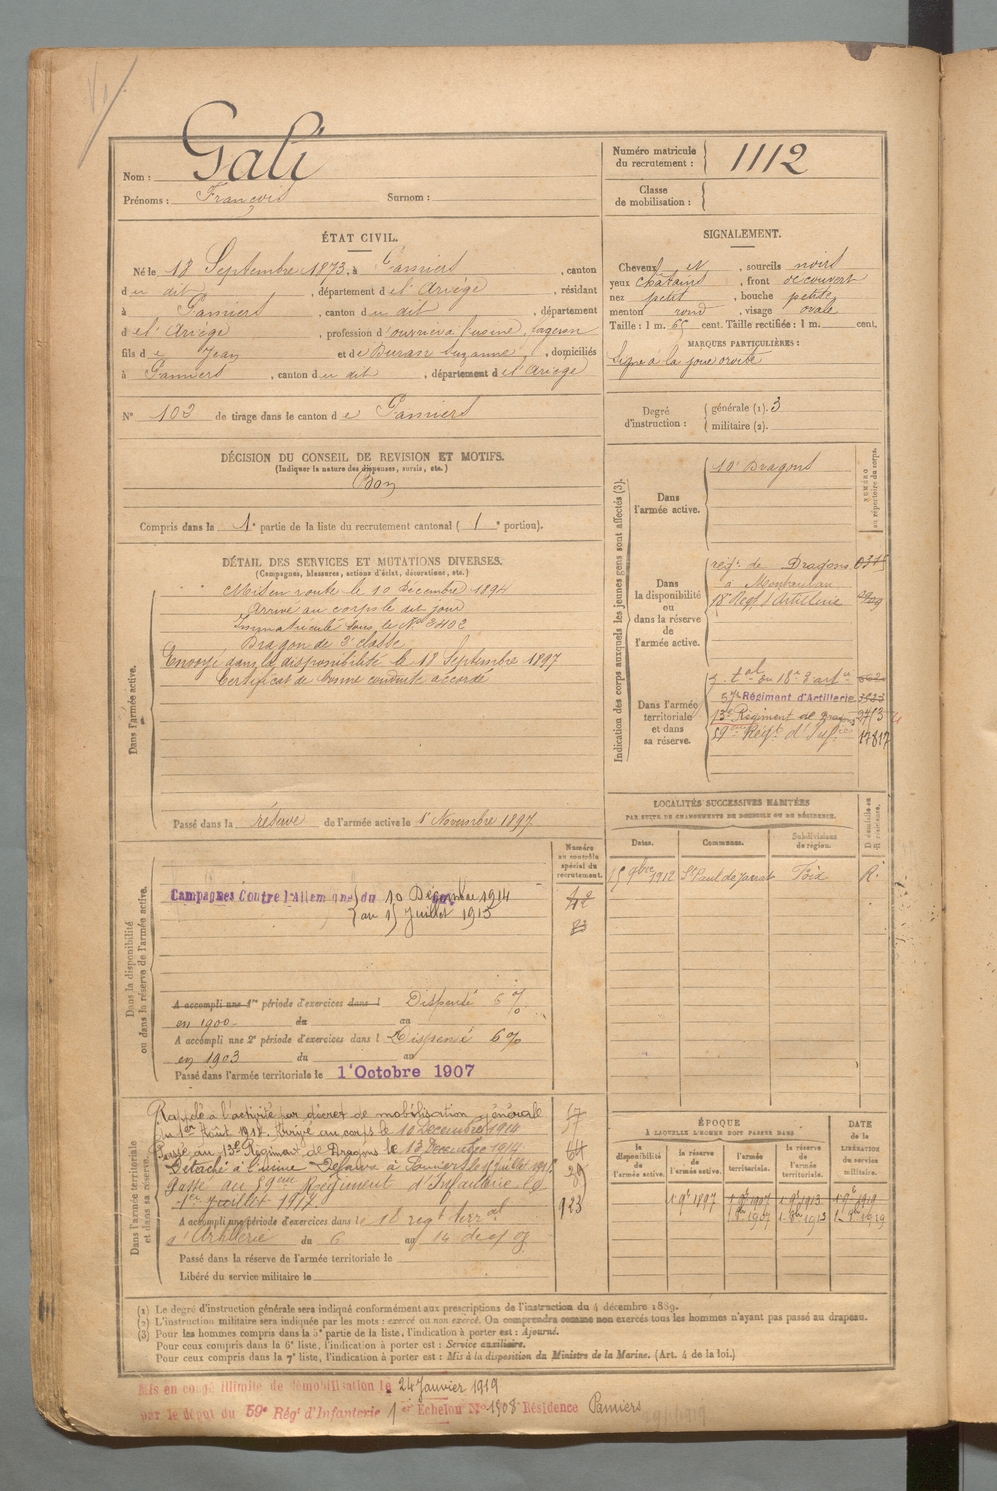 Nom : Gali
Prénoms : François Surnom :
Numéro matricule du recrutement : 1112
Classe de mobilisation :
ÉTAT CIVIL.
Né le 18 Septembre 1873, à Pamiers, canton
du dit, département de l'Ariège, résidant
à Pamiers, canton du dit, département
de l'Ariège, profession d'ouvrier à l'usine,
fils de Jean et de Duran Suzanne, domiciliés
à Pamiers, canton du dit, département de l'Ariège
N° 103 de tirage dans le canton de Pamiers
SIGNALEMENT.
Cheveux et, sourcils noirs
yeux châtains, front découvert
nez petit, bouche petite
menton rond, visage ovale
Taille : 1 m. 65 cent. Taille rectifiée : 1 m. cent.
MARQUES PARTICULIÈRES :
Signe à la joue droite
Degré d'instruction : générale (1). 3
militaire (2).
DÉCISION DU CONSEIL DE REVISION ET MOTIFS.
(Indiquer la nature des dispenses, sursis, etc.)
Bon
Compris dans la 1e partie de la liste du recrutement cantonal ( 1 e portion).
DÉTAIL DES SERVICES ET MUTATIONS DIVERSES.
(Campagnes, blessures, actions d'éclat, décorations, etc.)
Dans l'armée active.
Mis en route le 10 décembre 1894
Arrivé au corps le dit jour
Immatriculé sous le N° 3402
Dragon de 2e classe
Envoyé dans la disponibilité le 18 Septembre 1897
Certificat de bonne conduite accordé
Passé dans la réserve de l'armée active le 1er Novembre 1897
Indication des corps auxquels les jeunes gens sont affectés (3).
NUMÉRO au répertoire du corps.
Dans l'armée active.
10e Dragons
Dans la disponibilité ou dans la réserve de l'armée active.
régt de Dragons
à Montauban
18e Régt d'Artillerie
Dans l'armée territoriale et dans sa réserve.
g. tal du 18e d'artie
57e Régiment d'Artillerie
13e Régiment de Dragons 2713
59eme Régt d'Infie 17817
LOCALITÉS SUCCESSIVES HABITÉES
PAR SUITE DE CHANGEMENTS DE DOMICILE OU DE RÉSIDENCE.
Dates. Communes. Subdivisions de région. D domicile ou R résidence.
15 9bre 1912 St Paul de Jarrat Foix R.
Dans la disponibilité ou dans la réserve de l'armée active.
Numéro au contrôle spécial du recrutement.
Campagnes Contre l'Allemagne du 10 Décembre 1914
au 15 Juillet 1915
A accompli une 1re période d'exercices dans l Dispensé 6 %
en 1900 du au
A accompli une 2e période d'exercices dans l Dispensé 6 %
en 1903 du au
Passé dans l'armée territoriale le 1er Octobre 1907
Dans l'armée territoriale et dans sa réserve.
Rappelé à l'activité par décret de mobilisation générale
du 1er Août 1914. Arrivé au corps le 10 Décembre 1914
Passé au 13e Régiment de Dragons le 13 Décembre 1914
Détaché à l'usine à Pamiers le 15 juillet 1915.
Passé au 59eme Régiment d'Infanterie le
1er juillet 1917.
923
A accompli une période d'exercices dans le 18 regt terral
d'Artillerie du 6 au 14 déc 09
Passé dans la réserve de l'armée territoriale le
Libéré du service militaire le
ÉPOQUE
À LAQUELLE L'HOMME DOIT PASSER DANS
la disponibilité de l'armée active. la réserve de l'armée active. l'armée territoriale. la réserve de l'armée territoriale.
DATE de la LIBÉRATION du service militaire.
1 9e 1897 1 8e 1907 1 8e 1913 1 8e 1919
1 8bre 1907 1 8bre 1913 1 8bre 1919
(1) Le degré d'instruction générale sera indiqué conformément aux prescriptions de l'instruction du 4 décembre 1889.
(2) L'instruction militaire sera indiquée par les mots : exercé ou non exercé. On comprendra comme non exercés tous les hommes n'ayant pas passé au drapeau.
(3) Pour les hommes compris dans la 5e partie de la liste, l'indication à porter est : Ajourné.
Pour ceux compris dans la 6e liste, l'indication à porter est : Service auxiliaire.
Pour ceux compris dans la 7e liste, l'indication à porter est : Mis à la disposition du Ministre de la Marine. (Art. 4 de la loi.)
Mis en congé illimité de démobilisation le 24 Janvier 1919
par le dépôt du 59e Régt d'Infanterie 1er Echelon N° 1908 Résidence Pamiers